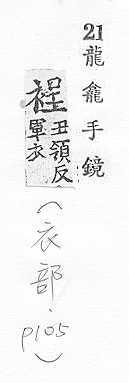 21龍龕手鏡
裎丑領反單衣
(衣部·p105)